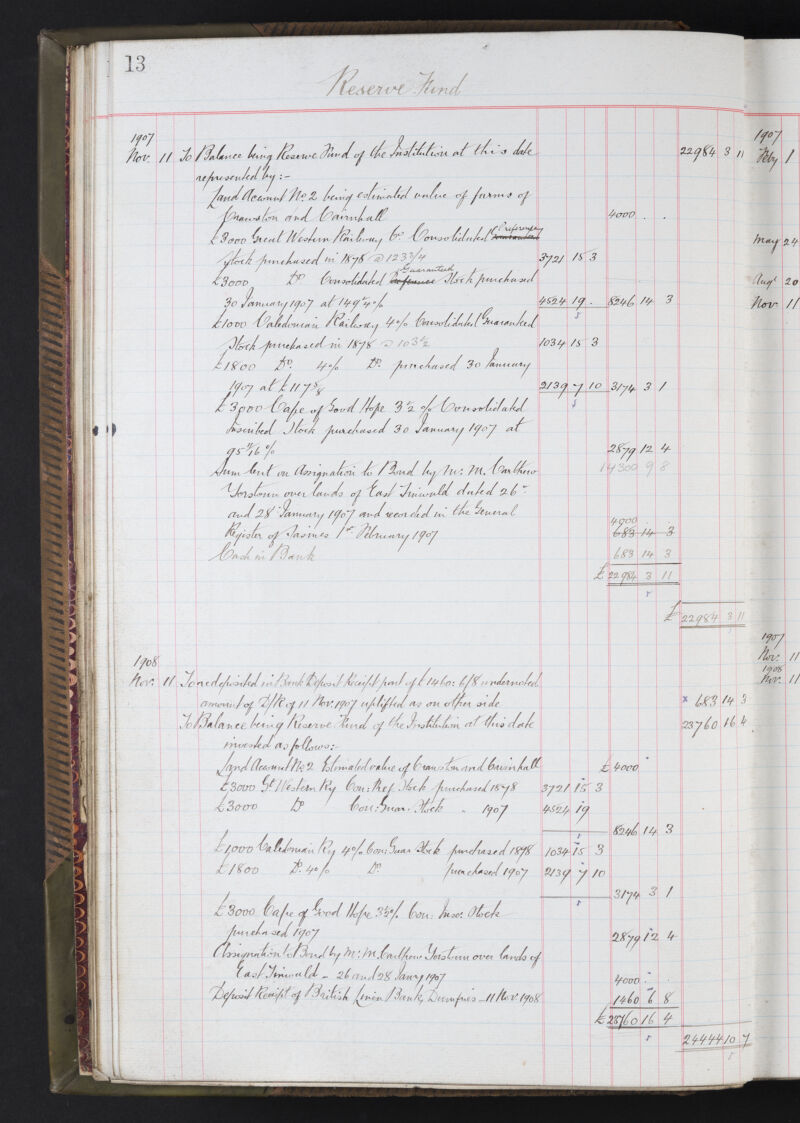 13
Reserve Fund
1907
Nov. 11 To Balance being Reserve Fund of the Institution at this date 22984 3 11
represented by :-
Land Account No. 2 being estimated value of farms of
Cranston and Cairnhall 4000 . .
£3000 Great Western Railway Co. Consolidated Preference
Stock purchased in 1878 @ 123 3/4 3721 15 3
£3000 Do Consolidated Guaranteed Stock purchased
30 January 1907 at 149 % 4524 19 . 8246 14 3
£1000 Caledonian Railway 4% Consolidated Guaranteed
Stock purchased in 1878 @ 103 1/2 1034 15 3
£1800 Do. 4% Do. purchased 30 January
1907 at £117 5/8 2139 7 10 3174 3 1
£3000 Cape of Good Hope 3 1/2 % Consolidated
Inscribed Stock purchased 30 January 1907 at
95 11/16 % 2879 12 4
Sum lent on Assignation to Bond by Mr. M. Carthew 14300 9 8
Yorstoun over lands of East Tinwald dated 26th
and 28th January 1907 and recorded in the General
4000
Register of Sasines 1st February 1907 683 14 3
Cash in Bank 683 14 3
£ 22984 3 11
£ 22984 3 11
1908
Nov. 11 To redeposited in Bank Deposit Receipt part of £1460: 6/8 undernoted
amount of D/R of 11 Nov. 1907 uplifted as on other side x 683 14 3
To Balance being Reserve Fund of the Institution at this date 23760 16 4
invested as follows:-
Land Account No 2 Estimated value of Cranston and Cairnhall £ 4000
£3000 Gt Western Ry Con: Pref. Stock purchased 1878 3721 15 3
£3000 Do Con: Guar. Stock " 1907 4524 19
8246 14 3
£1000 Caledonian Ry 4% Con: Guar Stock purchased 1878 1034 15 3
£1800 Do. 4% Do purchased 1907 2139 7 10
3174 3 1
£3000 Cape of Good Hope 3 1/2 % Con: Insc. Stock
purchased 1907 2879 12 4
Assignation to Bond by Mr. M. Carthew Yorstoun over lands of
East Tinwald - 26 and 28 Jany 1907 4000 . .
Deposit Receipt of British Linen Bank, Dumfries - 11 Nov 1908 1460 6 8
£ 23760 16 4
24444 10 7
1907
Feby 1
May 24
Augt 20
Nov 11
1907
Nov. 11
1908
Nov. 11